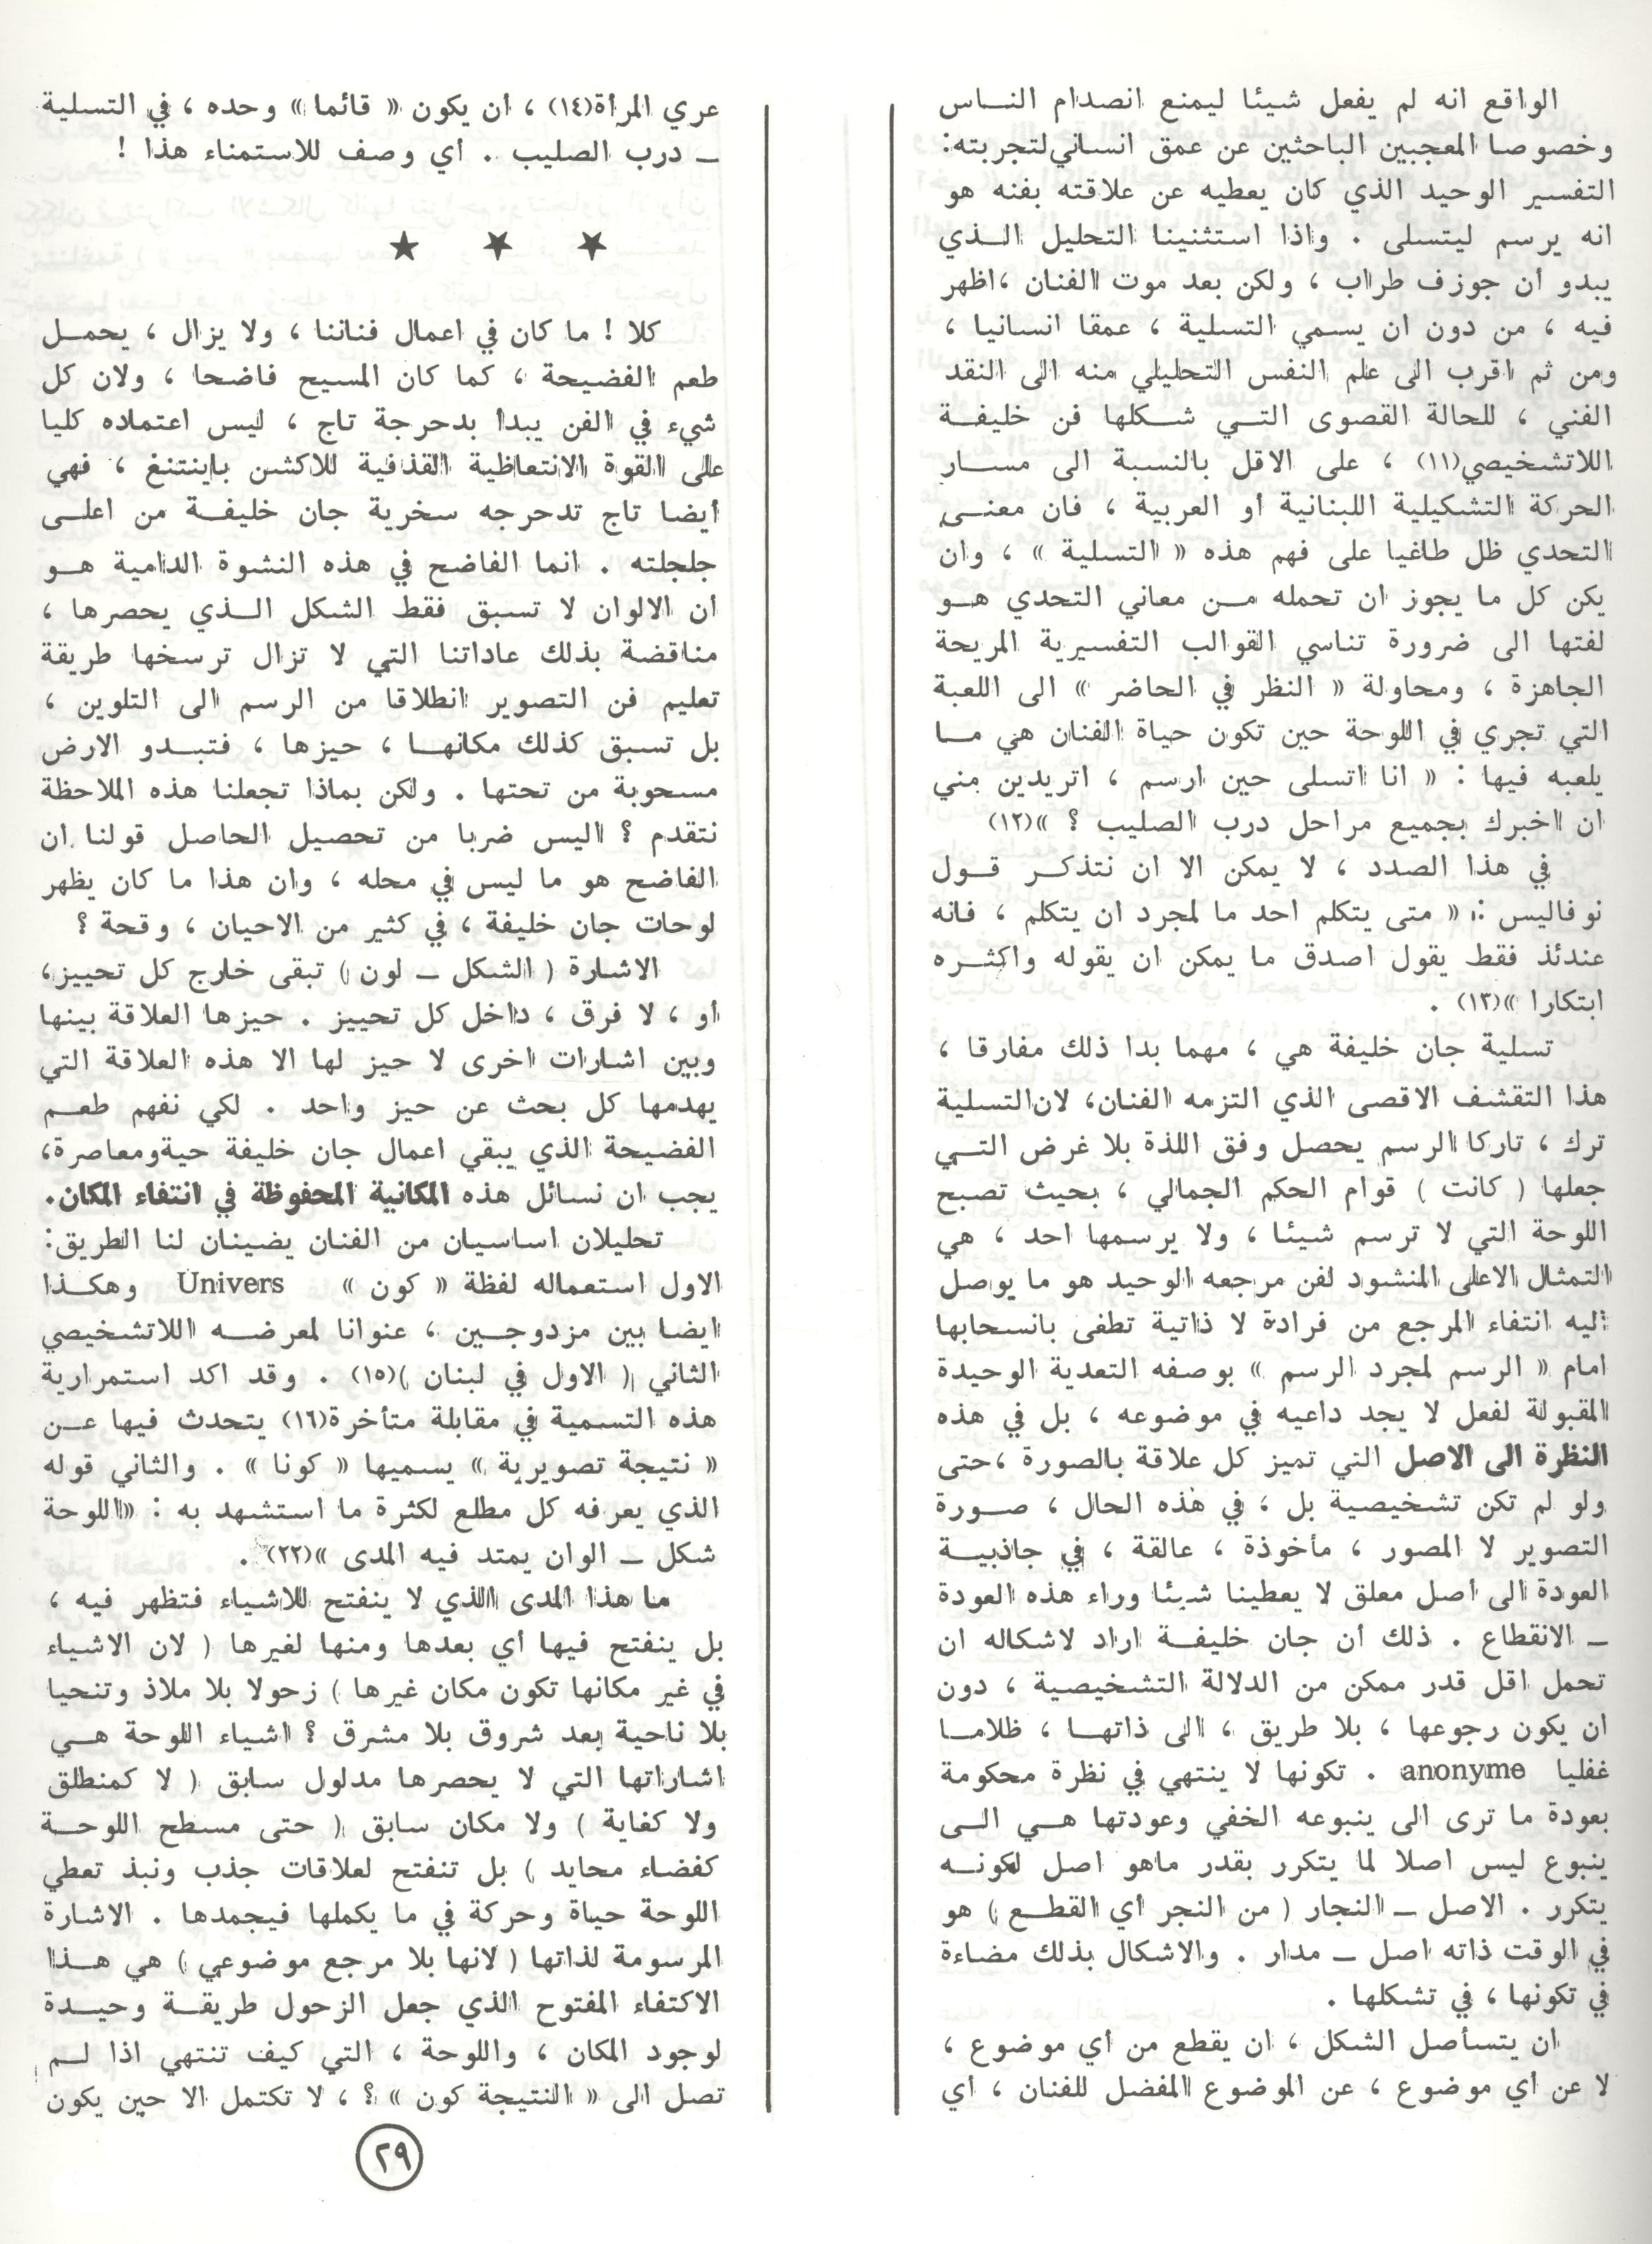 الواقع انه لم يفعل شيئا ليمنع انصدام النـاس
وخصوصا المعجبين الباحثين عن عمق انساني لتجربته:
التفسير الوحيد الذي كان يعطيه عن علاقته بفنه هو
انه يرسم ليتسلى . واذا استثنينا التحليل الـذي
يبدو أن جوزف طراب ، ولكن بعد موت الفنان ، اظهر
فيه ، من دون ان يسمي التسلية ، عمقا انسانيا ،
ومن ثم اقرب الى علم النفس التحليلي منه الى النقد
الفني ، للحالة القصوى التـي شـكلها فن خليفـة
اللاتشخيصي(١١) ، على الاقل بالنسبة الى مسـار
الحركة التشكيلية اللبنانية أو العربية ، فان معنـى
التحدي ظل طاغيا على فهم هذه « التسلية » ، وان
يكن كل ما يجوز ان تحمله مـن معاني التحدي هـو
لفتها الى ضرورة تناسي القوالب التفسيرية المريحة
الجاهزة ، ومحاولة « النظر في الحاضر » الى اللعبة
التي تجري في اللوحة حين تكون حياة الفنان هي مـا
يلعبه فيها : « انا اتسلى حين ارسم ، اتريدين مني
ان اخبرك بجميع مراحل درب الصليب ؟ »(١٢)
في هذا الصدد ، لا يمكن الا ان نتذكـر قـول
نوفاليس : « متى يتكلم احد ما لمجرد ان يتكلم ، فانه
عندئذ فقط يقول اصدق ما يمكن ان يقوله واكثـره
ابتكارا »(١٣) .
تسلية جان خليفة هي ، مهما بدا ذلك مفارقا ،
هذا التقشف الاقصى الذي التزمه الفنان، لان التسلية
ترك ، تاركا الرسم يحصل وفق اللذة بلا غرض التـي
جعلها ( كانت ) قوام الحكم الجمالي ، بحيث تصبح
اللوحة التي لا ترسم شيئا ، ولا يرسمها احد ، هي
التمثال الاعلى المنشود لفن مرجعه الوحيد هو ما يوصل
اليه انتفاء المرجع من فرادة لا ذاتية تطفى بانسحابها
امام « الرسم لمجرد الرسم » بوصفه التعدية الوحيدة
المقبولة لفعل لا يجد داعيه في موضوعه ، بل في هذه
النظرة الى الاصل التي تميز كل علاقة بالصورة ، حتى
ولو لم تكن تشخيصية بل ، في هذه الحال ، صـورة
التصوير لا المصور ، مأخوذة ، عالقة ، في جاذبيـة
العودة الى اصل معلق لا يعطينا شيئا وراء هذه العودة
ـ الانقطاع . ذلك أن جان خليفـة اراد لاشكاله ان
تحمل اقل قدر ممكن من الدلالة التشخيصية ، دون
ان يكون رجوعها ، بلا طريق ، الى ذاتهـا ، ظلامـا
غفليا anonyme . تكونها لا ينتهي في نظرة محكومة
بعودة ما ترى الى ينبوعه الخفي وعودتها هـي الـى
ينبوع ليس اصلا لما يتكرر بقدر ماهو اصل لكونـه
يتكرر . الاصل ـ النجار ( من النجر أي القطـع ) هو
في الوقت ذاته اصل ـ مدار . والاشكال بذلك مضاءة
في تكونها ، في تشكلها .
ان يتسأصل الشكل ، ان يقطع من أي موضوع ،
لا عن أي موضوع ، عن الموضوع المفضل للفنان ، أي
عري المرأة(١٤) ، أن يكون « قائما » وحده ، في التسلية
ـ درب الصليب . أي وصف للاستمناء هذا !
★ ★ ★
كلا ! ما كان في اعمال فناننا ، ولا يزال ، يحمـل
طعم الفضيحة ، كما كان المسيح فاضحا ، ولان كل
شيء في الفن يبدأ بدحرجة تاج ، ليس اعتماده كليا
على القوة الانتعاظية القذفية للاكشن باينتنغ ، فهي
أيضا تاج تدحرجه سخرية جان خليفـة من اعلـى
جلجلته . انما الفاضح في هذه النشوة الدامية هـو
أن الالوان لا تسبق فقط الشكل الـذي يحصرها ،
مناقضة بذلك عاداتنا التي لا تزال ترسخها طريقة
تعليم فن التصوير انطلاقا من الرسم الى التلوين ،
بل تسبق كذلك مكانهـا ، حيزها ، فتبـدو الارض
مسحوبة من تحتها . ولكن بماذا تجعلنا هذه الملاحظة
نتقدم ؟ اليس ضربا من تحصيل الحاصل قولنا ان
الفاضح هو ما ليس في محله ، وان هذا ما كان يظهر
لوحات جان خليفة ، في كثير من الاحيان ، وقحة ؟
الاشارة ( الشكل ـ لون ) تبقى خارج كل تحييز،
أو ، لا فرق ، داخل كل تحييز . حيزها العلاقة بينها
وبين اشارات اخرى لا حيز لها الا هذه العلاقة التي
يهدمها كل بحث عن حيز واحد . لكي نفهم طعـم
الفضيحة الذي يبقي اعمال جان خليفة حية ومعاصرة،
يجب ان نسائل هذه المكانية المحفوظة في انتفاء المكان.
تحليلان اساسيان من الفنان يضيئان لنا الطريق:
الاول استعماله لفظة « كون » Univers وهكـذا
ايضا بين مزدوجـين ، عنوانا لمعرضـه اللاتشخيصي
الثاني ( الاول في لبنان )(١٥) . وقد اكد استمرارية
هذه التسمية في مقابلة متأخرة(١٦) يتحدث فيها عـن
« نتيجة تصويرية » يسميها « كونا » . والثاني قوله
الذي يعرفه كل مطلع لكثرة ما استشهد به : «اللوحة
شكل ـ الوان يمتد فيه المدى »(٢٢) .
ما هذا المدى الذي لا ينفتح للاشياء فتظهر فيه ،
بل ينفتح فيها أي بعدها ومنها لغيرها ( لان الاشياء
في غير مكانها تكون مكان غيرها ) زحولا بلا ملاذ وتنحيا
بلا ناحية بعد شروق بلا مشرق ؟ اشياء اللوحة هـي
اشاراتها التي لا يحصرها مدلول سابق ( لا كمنطلق
ولا كغاية ) ولا مكان سابق ( حتى مسطح اللوحـة
كفضاء محايد ) بل تنفتح لعلاقات جذب ونبذ تعطي
اللوحة حياة وحركة في ما يكملها فيجمدها . الاشارة
المرسومة لذاتها ( لانها بلا مرجع موضوعي ) هي هـذا
الاكتفاء المفتوح الذي جعل الزحول طريقـة وحيـدة
لوجود المكان ، واللوحة ، التي كيف تنتهي اذا لـم
تصل الى « النتيجة كون » ؟ ، لا تكتمل الا حين يكون
٢٩